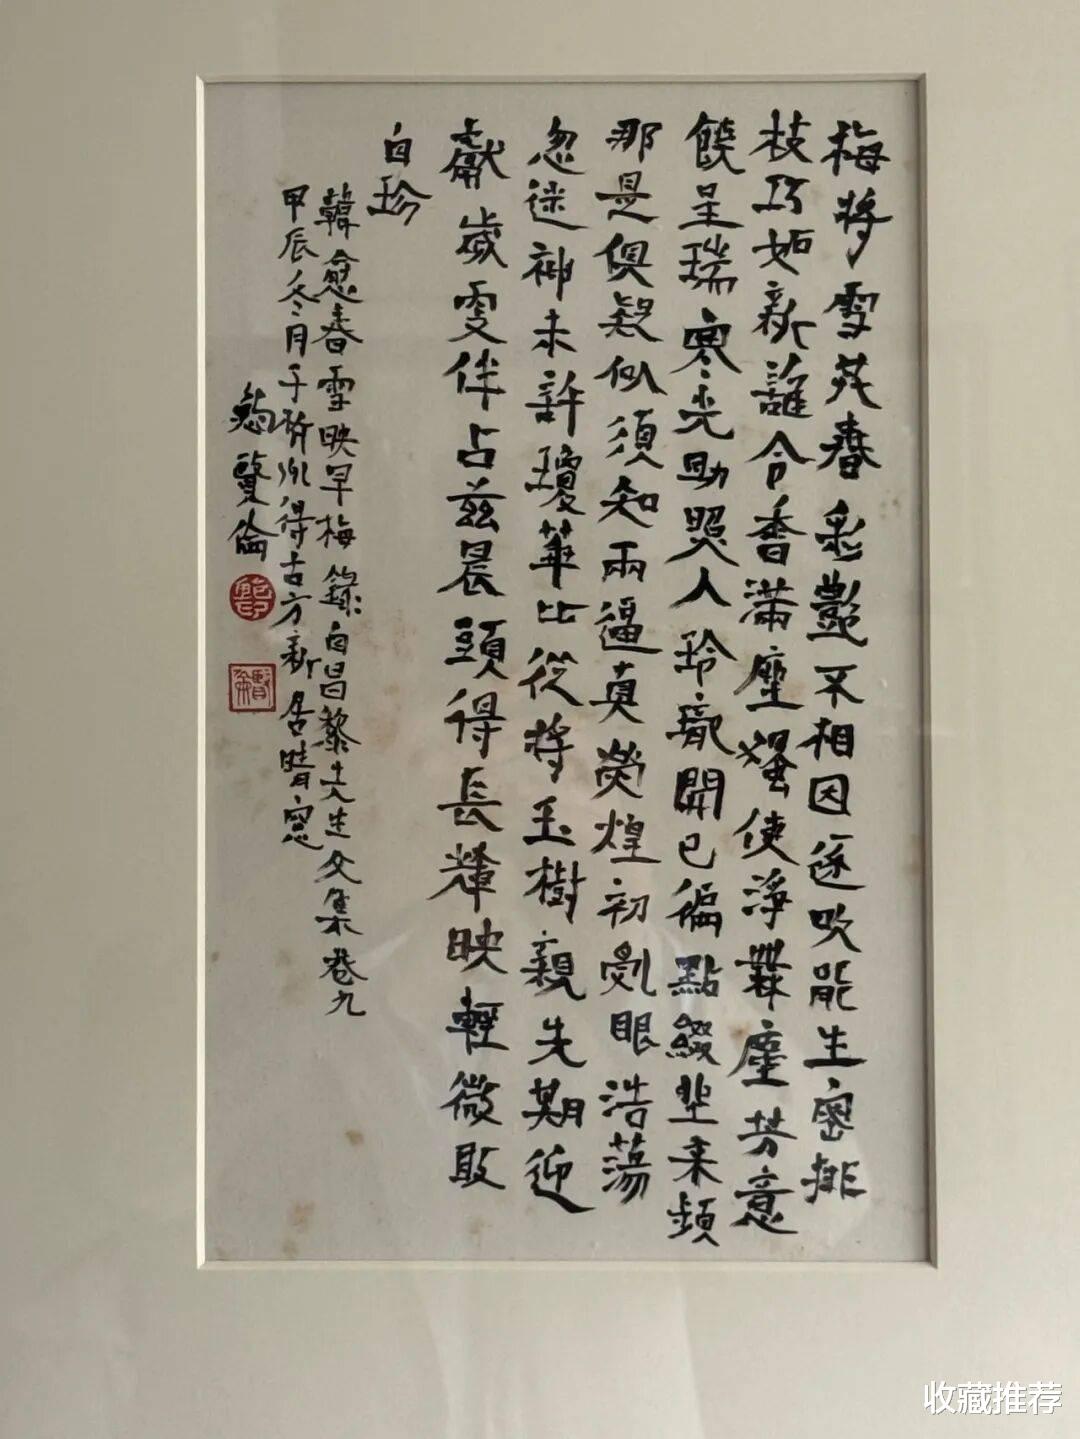 梅將雪共春彩艷不相因逐吹能生密排
枝巧妬新誰令香滿座獨使淨無塵芳意
饒呈瑞寒光助照人玲瓏開已徧點綴坐來頻
那是俱疑似須知兩逼真熒煌初亂眼浩蕩
忽迷神未許瓊華比從將玉樹親先期迎
獻歲更伴占兹晨願得長輝映輕微敢
自珍
韓愈春雪映早梅錄自昌黎先生文集卷九
甲辰冬月于 州得古方新居晴窗
鮑賢倫
收藏推荐